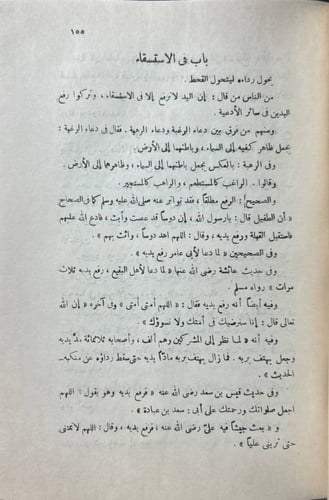 ١٥٥
باب فى الاستسقاء
يحول رداءه ليتحول القحط .
من الناس من قال : إن اليد لاترفع إلا فى الاستسقاء ، وتركوا رفع
اليدين فى سائر الأدعية .
ومنهم من فرق بين دعاء الرغبة ودعاء الرهبة . فقال فى دعاء الرغبة :
يجعل ظاهر كفيه إلى السماء ، وباطنهما إلى الأرض .
وفى الرهبة : بالعكس يجعل باطنهما إلى السماء ، وظاهرهما إلى الأرض .
وقالوا . الراغب كالمستطعم ، والراهب كالمستجير .
والصحيح : الرفع مطلقاً ، فقد تواتر عنه صلى الله عليه وسلم كما فى الصحاح
« أن الطفيل قال : يارسول الله ، إن دوساً قد عصت وأبت ، فادع الله عليهم
فاستقبل القبلة ورفع يديه ، وقال : اللهم اهد دوساً ، وائت بهم » .
وفى الصحيحين « لما دعا لأبى عامر رفع يديه » .
وفى حديث عائشة رضى الله عنها « لما دعا لأهل البقيع ، رفع يديه ثلاث
مرات » رواه مسلم .
وفيه أيضاً أنه رفع يديه فقال : « اللهم أمتى أمتى » وفى آخره « إن الله
تعالى قال : إنا سنرضيك فى أمتك ولا نسوؤك » .
وفيه أنه « لما نظر إلى المشركين وهم ألف ، وأصحابه ثلاثمائة مدّ يديه
وجعل يهتف بربه . فما زال يهتف بربه مادّاً يديه حتى سقط رداؤه عن منكبيه ـ
الحديث » .
وفى حديث قيس بن سعد رضى الله عنه « فرفع يديه وهو يقول : اللهم
اجعل صلواتك ورحمتك على آل سعد بن عبادة » .
و « بعث جيشاً فيه علىّ رضى الله عنه ، فرفع يديه ، وقال : اللهم لاتمتنى
حتى ترينى علياً » .